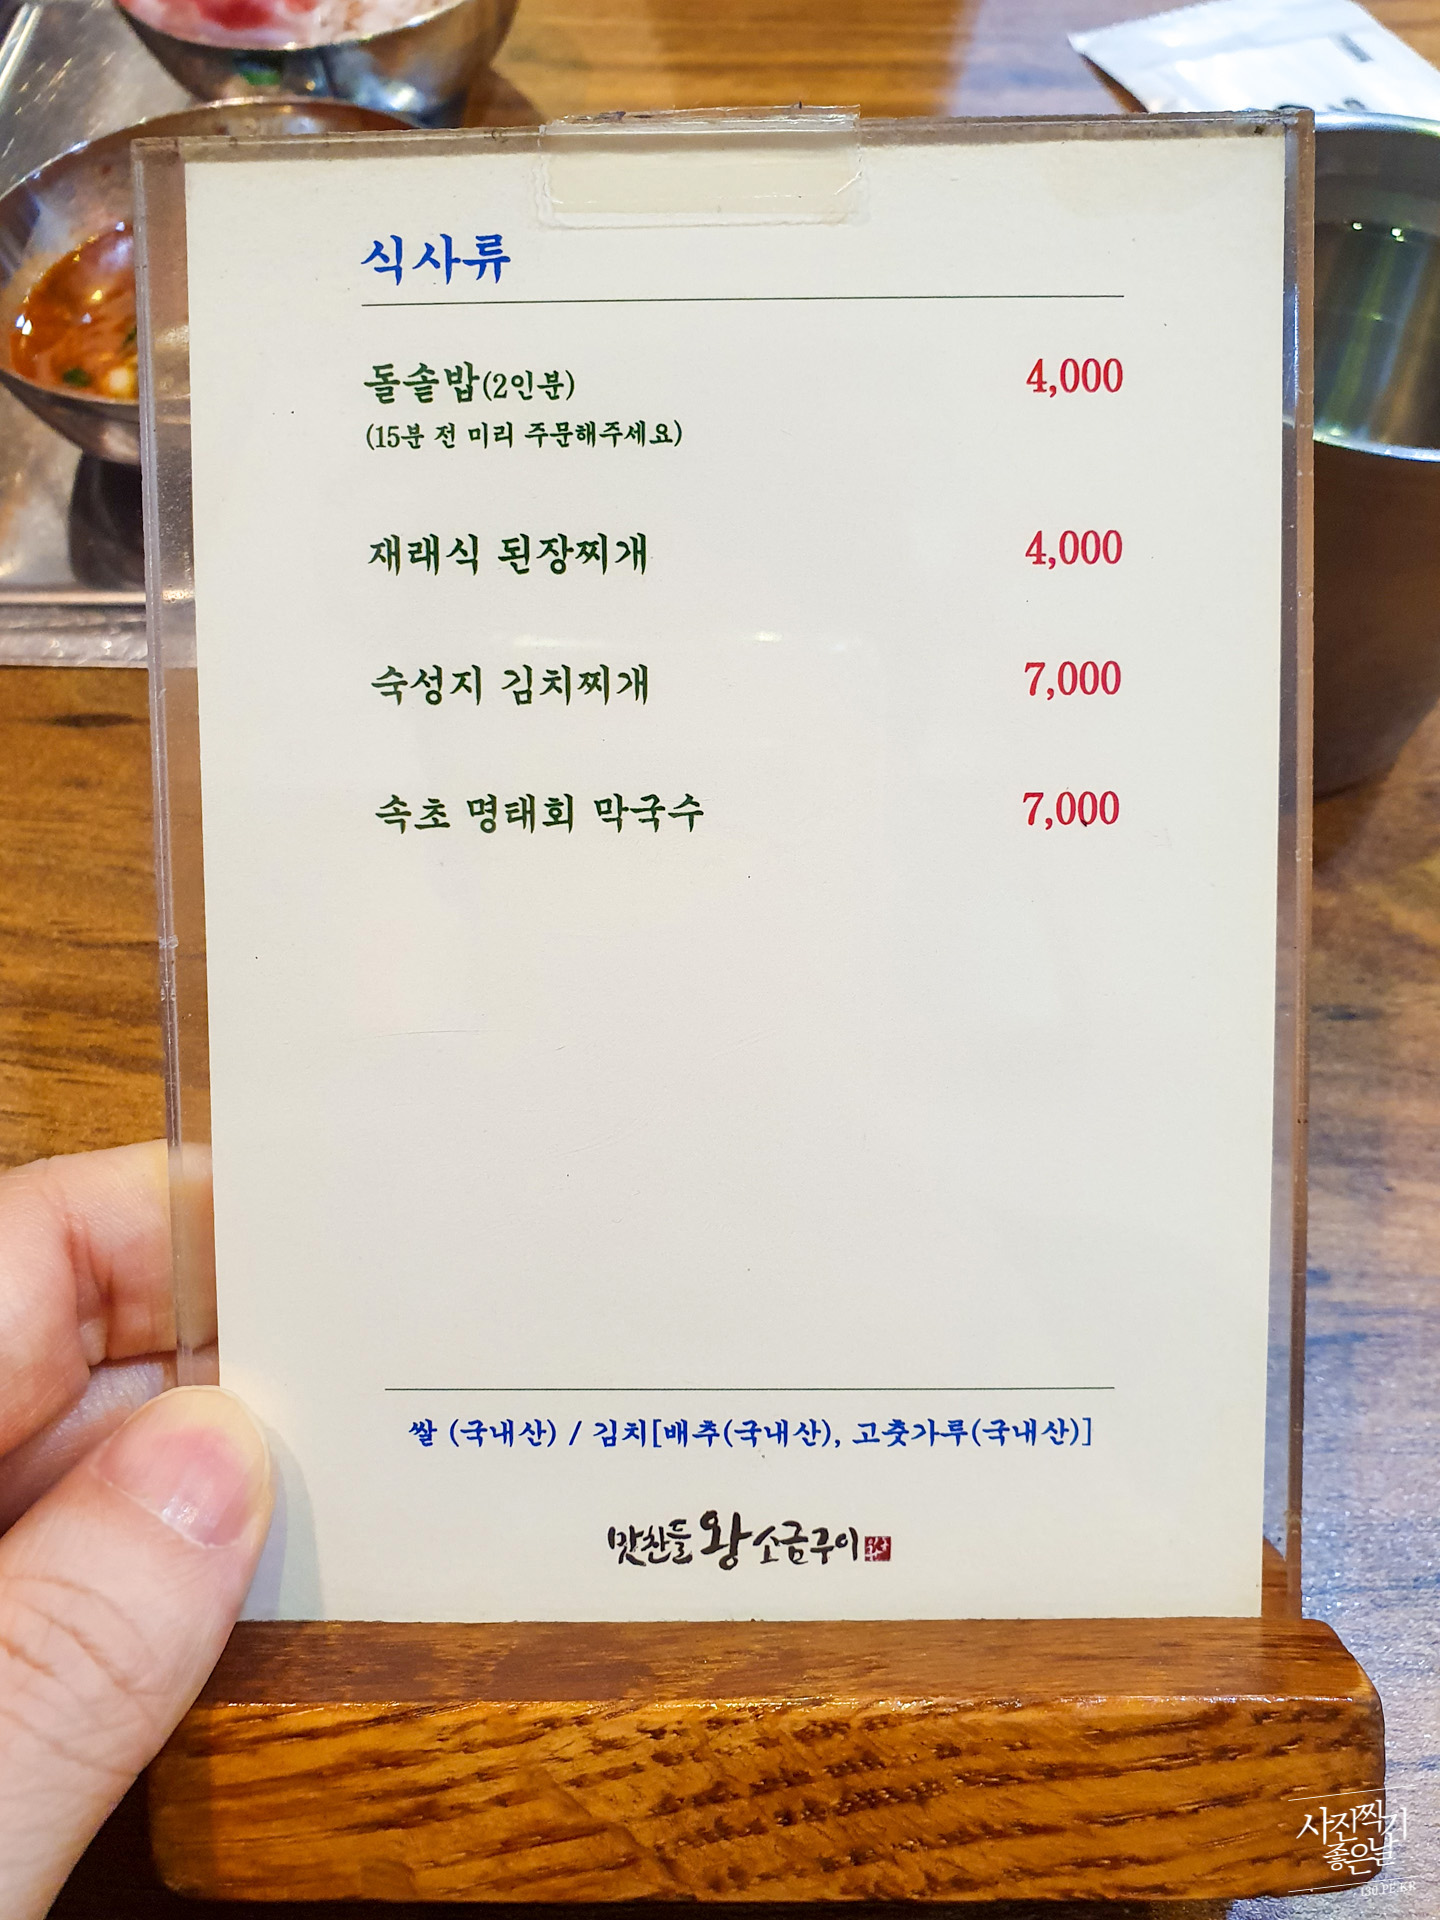 식사류
돌솥밥(2인분) 4,000
(15분 전 미리 주문해주세요)
재래식 된장찌개 4,000
숙성지 김치찌개 7,000
속초 명태회 막국수 7,000
쌀 (국내산) / 김치[배추(국내산), 고춧가루(국내산)]
맛찬들 왕 소금구이
사진찍기
좋은날
130.PE.KR